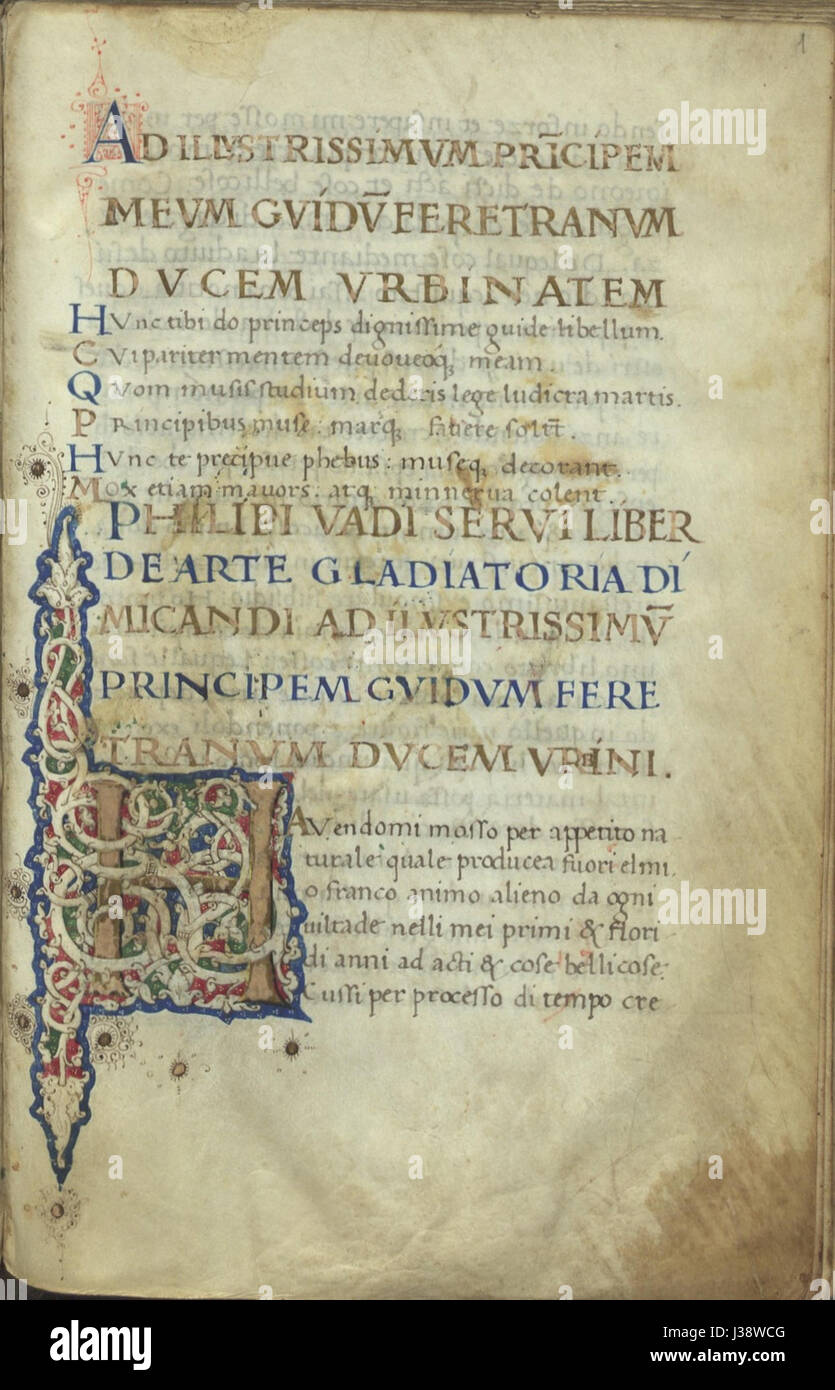 1
AD ILLVSTRISSIMVM PRĪCIPEM
MEVM GVIDŪ FERETRANVM
DVCEM VRBINATEM
HVnc tibi do princeps dignissime guide libellum.
CVi pariter mentem deuoueoq, meam.
QVom musis studium dederis lege ludicra martis.
PRincipibus muse: marq, fauere solīt.
HVnc te precipue phebus: museq, decorant.
MOx etiam mauors: atq, minnerua colent.
PHILIPI VADI SERVI LIBER
DE ARTE GLADIATORIA DI
MICANDI AD ILLVSTRISSIMV̄
PRINCIPEM GVIDVM FERE
TRANVM DVCEM VRBINI.
HAVendomi mosso per appetito na
turale quale producea fuori el mi
o franco animo alieno da ogni
uiltade nelli mei primi & flori
di anni ad acti & cose bellicose:
Cussi per processo di tempo cre
alamy
J38WCG
www.alamy.com